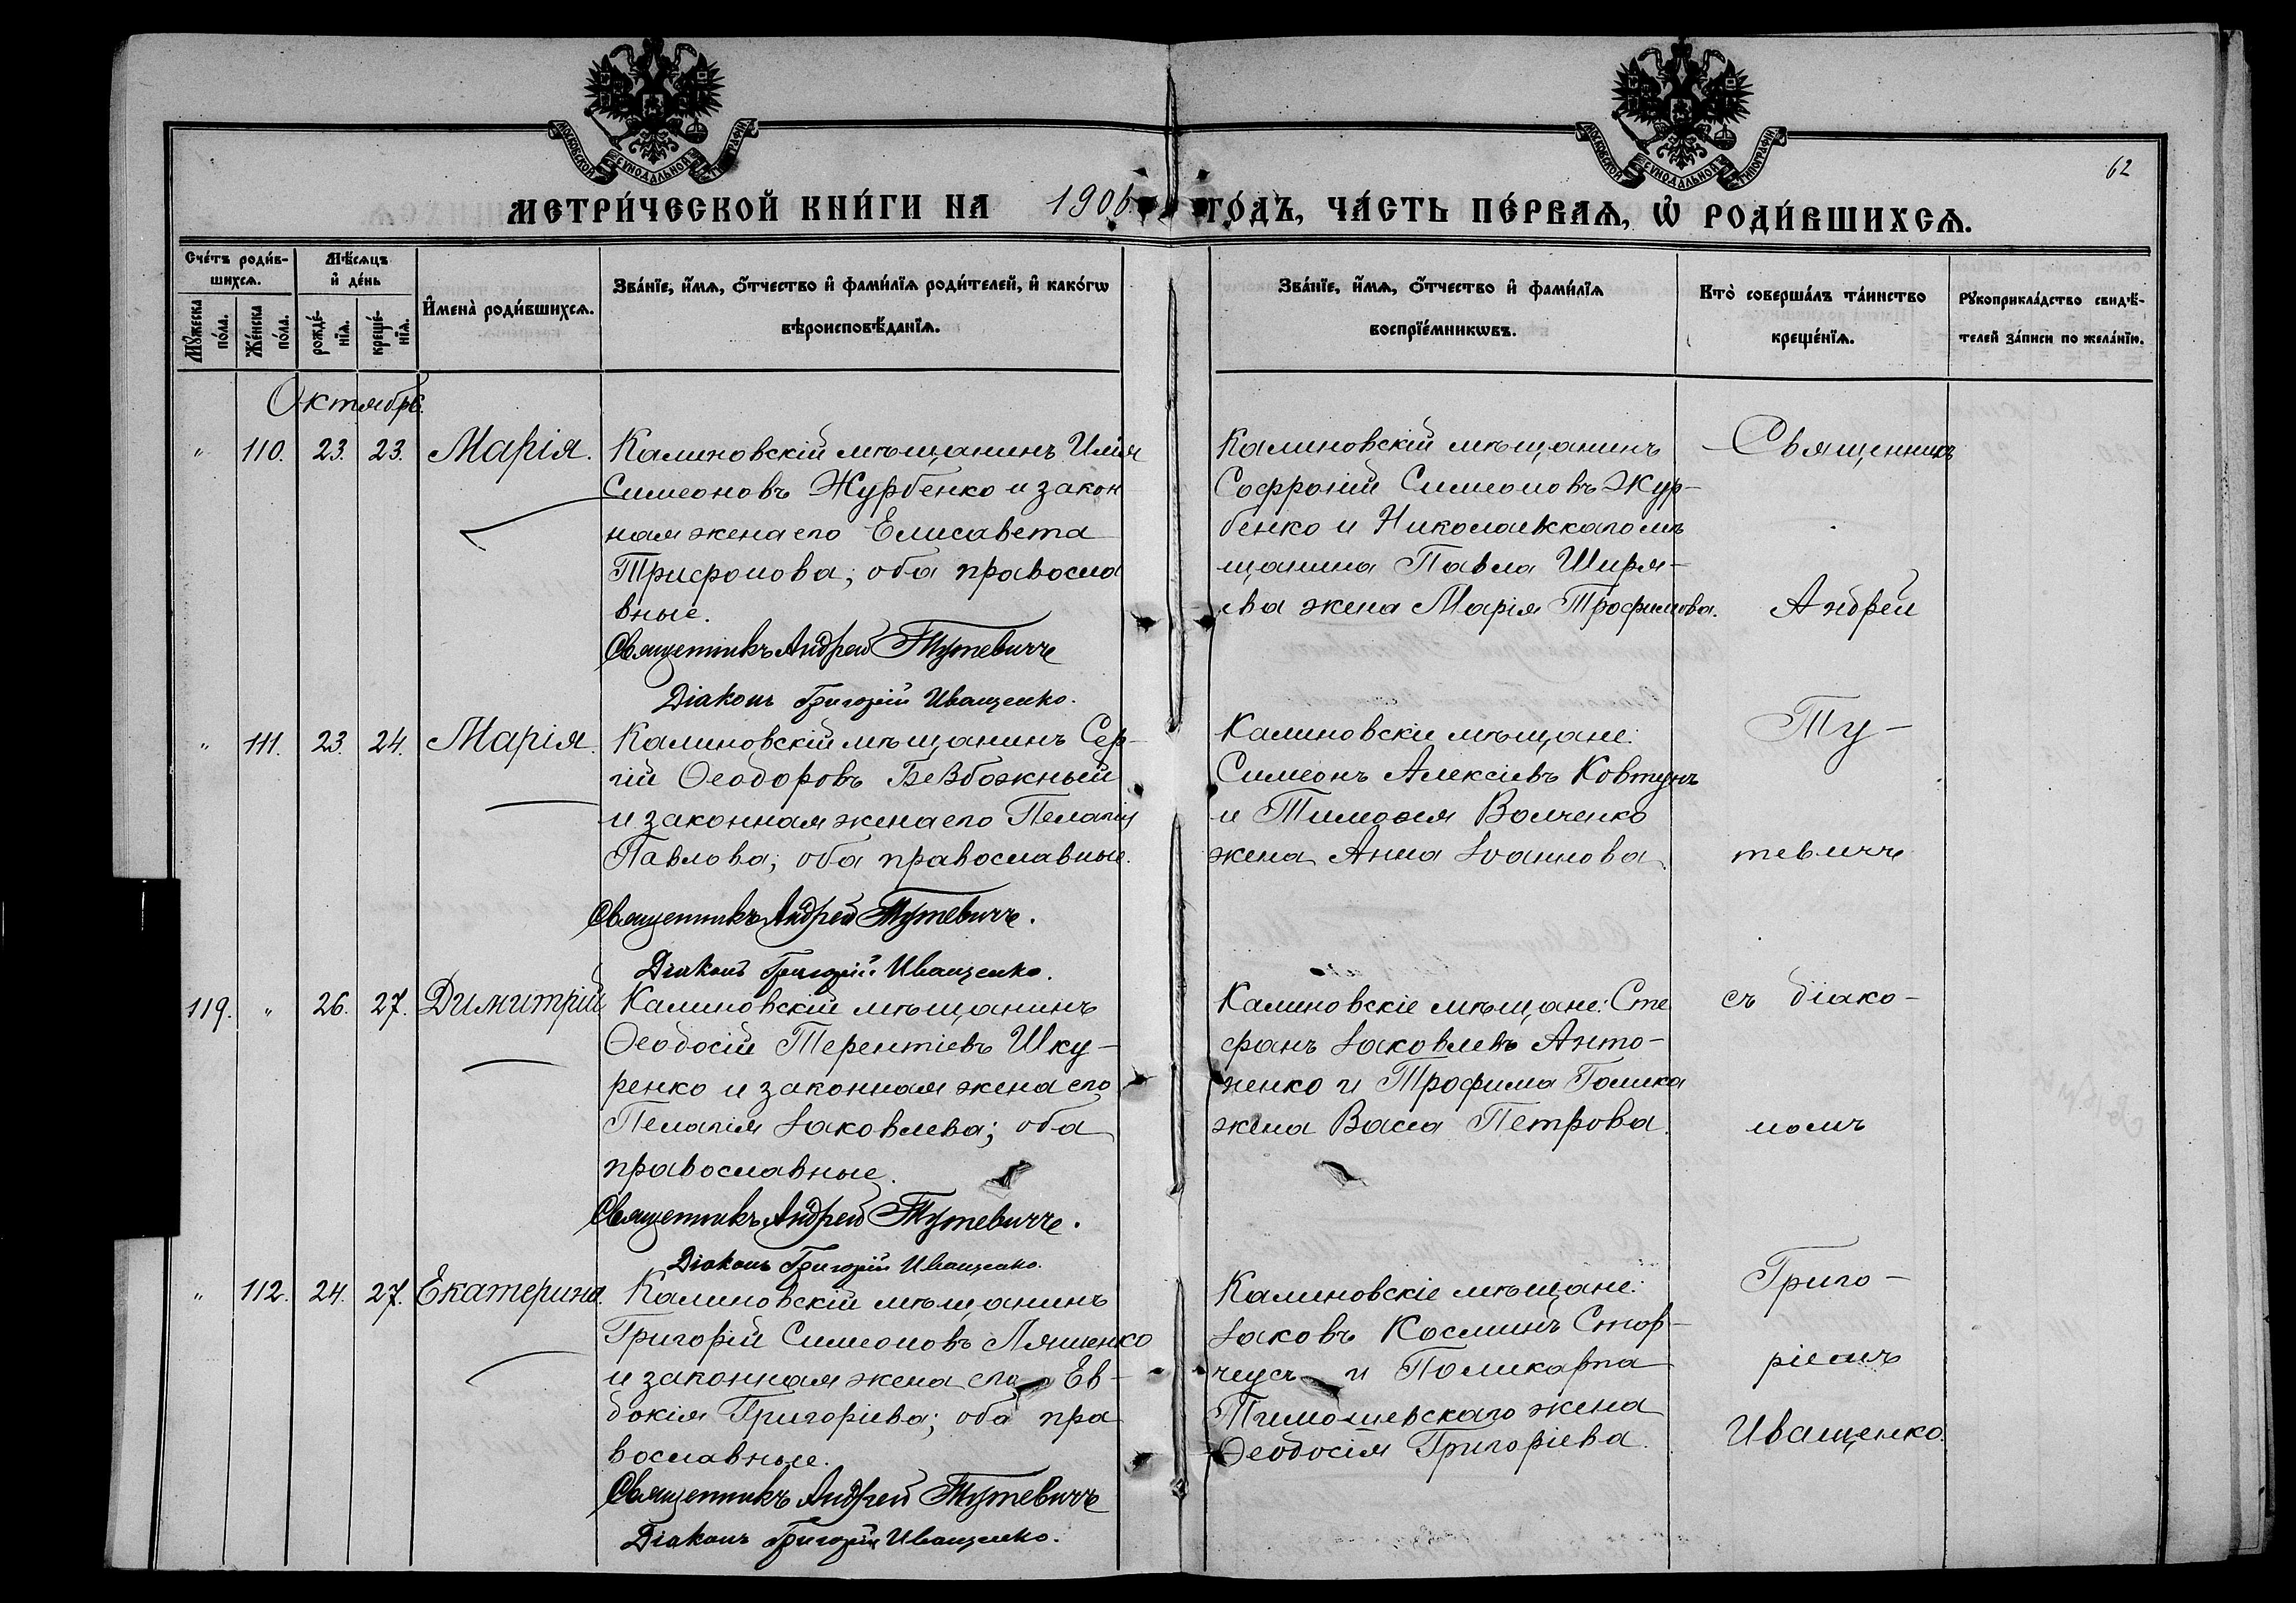 МОСКОВСКОЙ СѴНОДАЛЬНОЙ ТИПОГРАФІИ
МОСКОВСКОЙ СѴНОДАЛЬНОЙ ТИПОГРАФІИ
62
МЕТРИ́ЧЕСКОЙ КНИ́ГИ НА 1906
ГО́ДЪ, ЧА́СТЬ ПЕ́РВАѦ, Ѽ РОДИ́ВШИХСѦ.
Сче́тъ роди́в-
шихсѧ.
Мꙋ́жеска
по́ла.
Же́нска
по́ла.
Мѣ́сѧцъ
и҆ де́нь
рожде́-
нїѧ.
креще́-
нїѧ.
И҆мена̀ роди́вшихсѧ.
Зва́нїе, и҆́мѧ, ѻ҆́тчество и҆ фами́лїѧ роди́телей, и҆ како́гѡ
вѣроисповѣ́данїѧ.
Зва́нїе, и҆́мѧ, ѻ҆́тчество и҆ фами́лїѧ
воспрїе́мникѡвъ.
Кто̀ соверша́лъ та́инство
креще́нїѧ.
Рꙋкоприкла́дство свидѣ́-
телей за́писи по жела́нїю.
Октябрь.
" 110. 23. 23. Марія.
Калиновскій мѣщанинъ Илія
Симеоновъ Журбенко и закон
ная жена его Елисавета
Трифонова; оба правосла
вные.
Священникъ Андрей Тутевичъ
Діаконъ Григорій Иващенко.
Калиновскій мѣщанинъ
Софроній Симеоновъ Жур-
бенко и Николаевскаго мѣ
щанина Павла Ширя-
ева жена Марія Трофимова.
Священникъ
Андрей
" 111. 23. 24. Марія.
Калиновскій мѣщанинъ Сер-
гій Ѳеодоровъ Безбожный
и законная жена его Пелагія
Павлова; оба православные.
Священникъ Андрей Тутевичъ.
Діаконъ Григорій Иващенко.
Калиновскіе мѣщане:
Симеонъ Алексіевъ Ковтунъ
и Тимоѳея Волченко
жена Анна Іоаннова
Ту-
тевичъ
119. " 26. 27. Димитрій
Калиновскій мѣщанинъ
Ѳеодосій Терентіевъ Шку-
ренко и законная жена его
Пелагія Іаковлева; оба
православные.
Священникъ Андрей Тутевичъ.
Діаконъ Григорій Иващенко.
Калиновскіе мѣщане: Сте
фанъ Іаковлевъ Анто-
ненко и Трофима Голика
жена Васса Петрова.
съ діако-
номъ
" 112. 24. 27. Екатерина.
Калиновскій мѣщанинъ
Григорій Симеоновъ Ляшенко
и законная жена его Ев-
докія Григоріева; оба пра
вославные.
Священникъ Андрей Тутевичъ
Діаконъ Григорій Иващенко.
Калиновскіе мѣщане:
Іаковъ Косминъ Стор-
чеусъ и Поликарпа
Тимошевскаго жена
Ѳеодосія Григоріева.
Григо-
ріемъ
Иващенко.